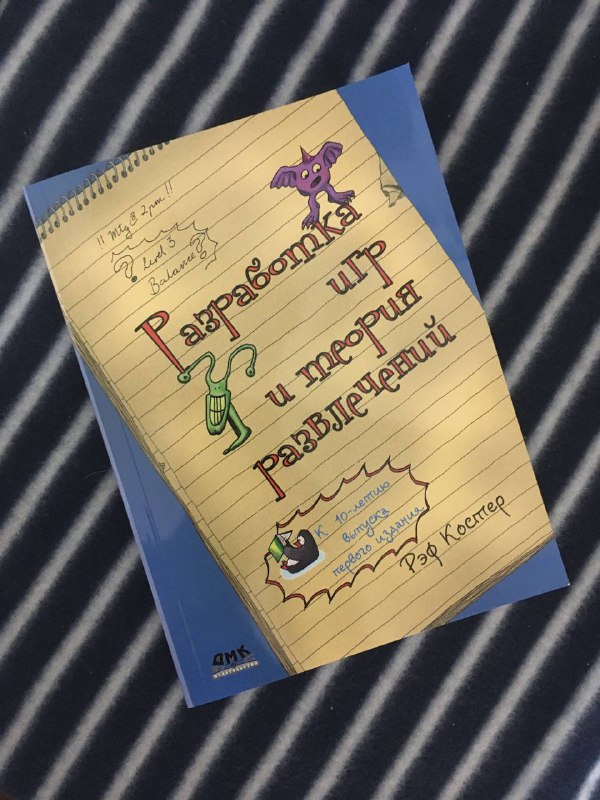 !! Mtg @ 2pm !!
? Level 3
Balance ?
Разработка
игр
и теория
развлечений
К 10-летию
выпуска
первого издания
Рэф Костер
ДМК
ИЗДАТЕЛЬСТВО